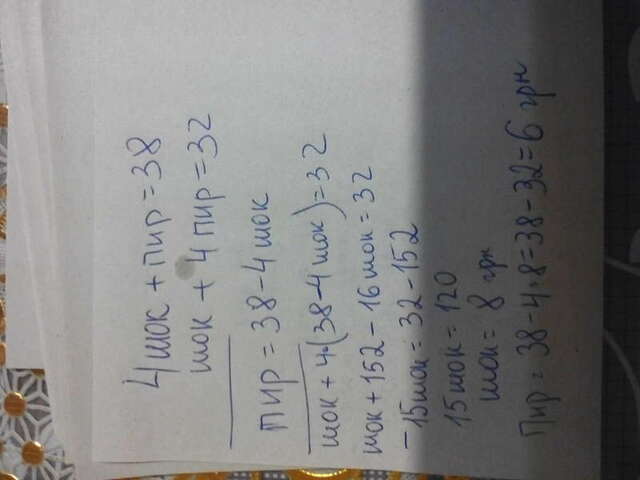 4 шок + пир = 38
шок + 4 пир = 32
пир = 38 - 4 шок
шок + 4·(38 - 4 шок) = 32
шок + 152 - 16 шок = 32
-15 шок = 32 - 152
15 шок = 120
шок = 8 грн
Пир = 38 - 4·8 = 38 - 32 = 6 грн